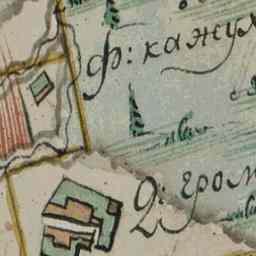 ф: кажум
Д: гром